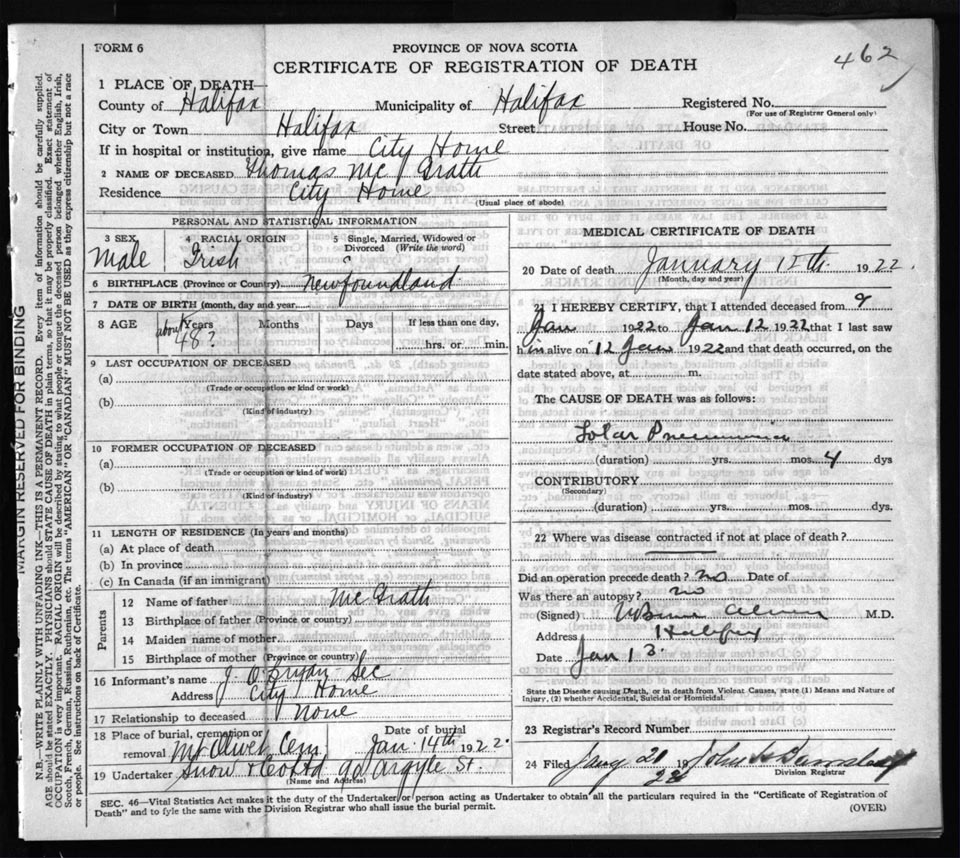 FORM 6
PROVINCE OF NOVA SCOTIA
CERTIFICATE OF REGISTRATION OF DEATH
462
1 PLACE OF DEATH—
County of Halifax Municipality of Halifax Registered No.
(For use of Registrar General only)
City or Town Halifax Street House No.
If in hospital or institution, give name City Home
2 NAME OF DECEASED Thomas Mc Grath
Residence City Home
(Usual place of abode)
PERSONAL AND STATISTICAL INFORMATION
3 SEX 4 RACIAL ORIGIN 5 Single, Married, Widowed or Divorced (Write the word)
Male Irish ?
6 BIRTHPLACE (Province or Country) Newfoundland
7 DATE OF BIRTH (month, day and year)
8 AGE Years Months Days If less than one day,
about 48? hrs. or min.
9 LAST OCCUPATION OF DECEASED
(a)
(Trade or occupation or kind of work)
(b)
(Kind of industry)
10 FORMER OCCUPATION OF DECEASED
(a)
(Trade or occupation or kind of work)
(b)
(Kind of industry)
11 LENGTH OF RESIDENCE (In years and months)
(a) At place of death
(b) In province
(c) In Canada (if an immigrant)
Parents
12 Name of father Mc Grath
13 Birthplace of father (Province or country)
14 Maiden name of mother
15 Birthplace of mother (Province or country)
16 Informant's name J. O'Bryan Sec
Address City Home
17 Relationship to deceased None
18 Place of burial, cremation or removal Mt Olivet Cem Date of burial Jan. 14th 1922
19 Undertaker Snow & Co Ltd 90 Argyle St.
(Name and Address)
MEDICAL CERTIFICATE OF DEATH
20 Date of death January 12th 1922.
(Month, day and year)
21 I HEREBY CERTIFY, that I attended deceased from 9
Jan 1922 to Jan 12 1922 that I last saw
him alive on 12 Jan 1922 and that death occurred, on the
date stated above, at m.
The CAUSE OF DEATH was as follows:
Lobar Pneumonia
(duration) yrs. mos. 4 dys
CONTRIBUTORY
(Secondary)
(duration) yrs. mos. dys
22 Where was disease contracted if not at place of death?
Did an operation precede death? no Date of
Was there an autopsy? no
(Signed) M.D.
Address Halifax
Date Jan 13.
State the Disease causing Death, or in death from Violent Causes, state (1) Means and Nature of
Injury, (2) whether Accidental, Suicidal or Homicidal.
23 Registrar's Record Number
24 Filed 19 John
Division Registrar
SEC. 46—Vital Statistics Act makes it the duty of the Undertaker or person acting as Undertaker to obtain all the particulars required in the "Certificate of Registration of
Death" and to fyle the same with the Division Registrar who shall issue the burial permit.
(OVER)
MARGIN RESERVED FOR BINDING
N.B.—WRITE PLAINLY WITH UNFADING INK—THIS IS A PERMANENT RECORD. Every item of information should be carefully supplied.
AGE should be stated EXACTLY. PHYSICIANS should STATE CAUSE OF DEATH in plain terms, so that it may be properly classified. Exact statement of
OCCUPATION is very important. RACIAL ORIGIN will be described by stating to what people or tongue the deceased person belonged whether English, Irish,
Scotch, French, German, Russian, Ruthenian, etc. The terms "AMERICAN" OR "CANADIAN" MUST NOT BE USED as they express citizenship but not a race
or people. See instructions on back of Certificate.